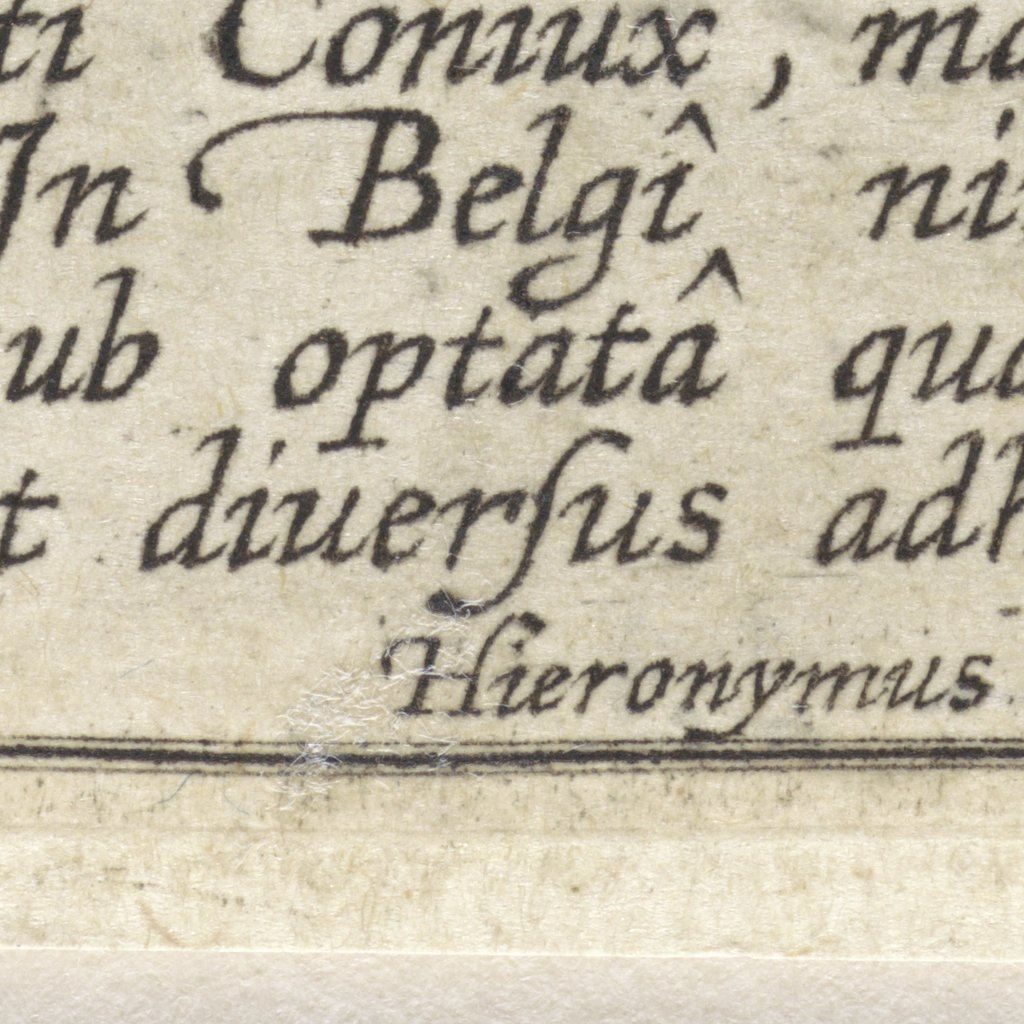 ti Coniux, ma
In Belgî ni
ub optatâ qua
t diuerſus adh
Hieronymus